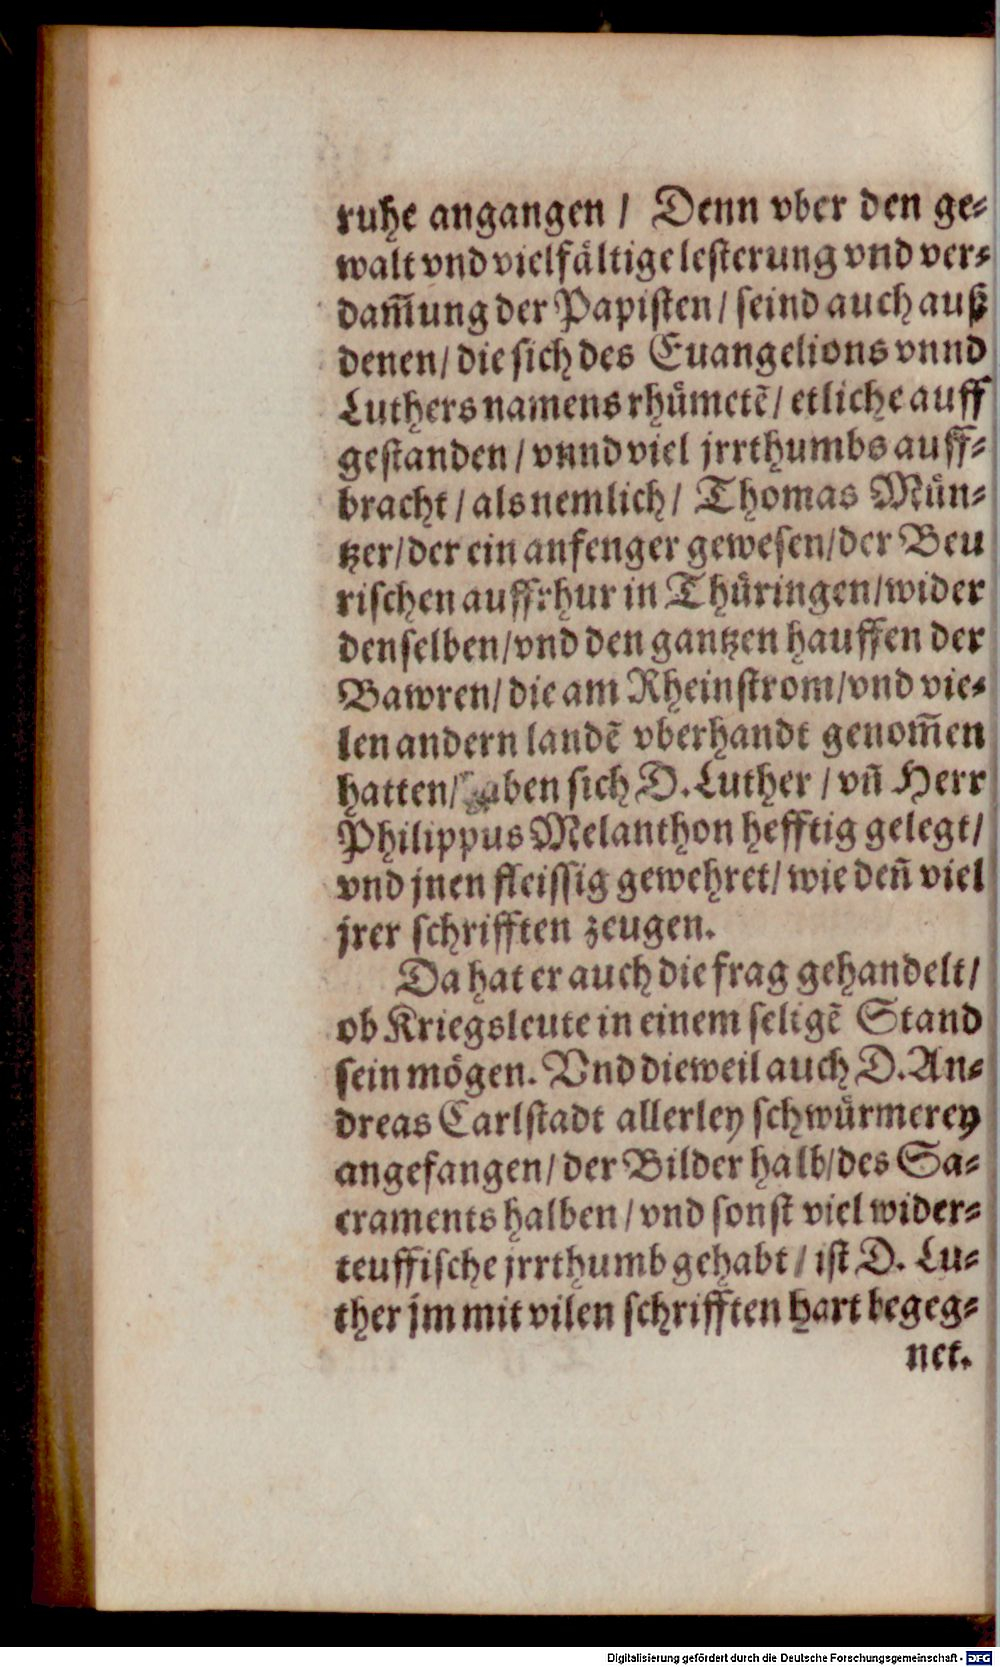 ruhe angangen / Denn vber den ge-
walt vnd vielfältige lesterung vnd ver-
dam̃ung der Papisten / seind auch auß
denen / die sich des Euangelions vnnd
Luthers namens rhuͤmetẽ / etliche auff
gestanden / vnnd viel jrrthumbs auff-
bracht / als nemlich / Thomas Muͤn-
tzer / der ein anfenger gewesen / der Beu
rischen auffrhur in Thuͤringen / wider
denselben / vnd den gantzen hauffen der
Bawren / die am Rheinstrom / vnd vie-
len andern landẽ vberhandt genom̃en
hatten / haben sich D. Luther / vñ Herr
Philippus Melanthon hefftig gelegt /
vnd jnen fleissig gewehret / wie deñ viel
jrer schrifften zeugen.
Da hat er auch die frag gehandelt /
ob Kriegsleute in einem seligẽ Stand
sein mögen. Vnd dieweil auch D. An-
dreas Carlstadt allerley schwuͤrmerey
angefangen / der Bilder halb / des Sa-
craments halben / vnd sonst viel wider-
teuffische jrrthumb gehabt / ist D. Lu-
ther jm mit vilen schrifften hart begeg-
net.
Digitalisierung gefördert durch die Deutsche Forschungsgemeinschaft - DFG